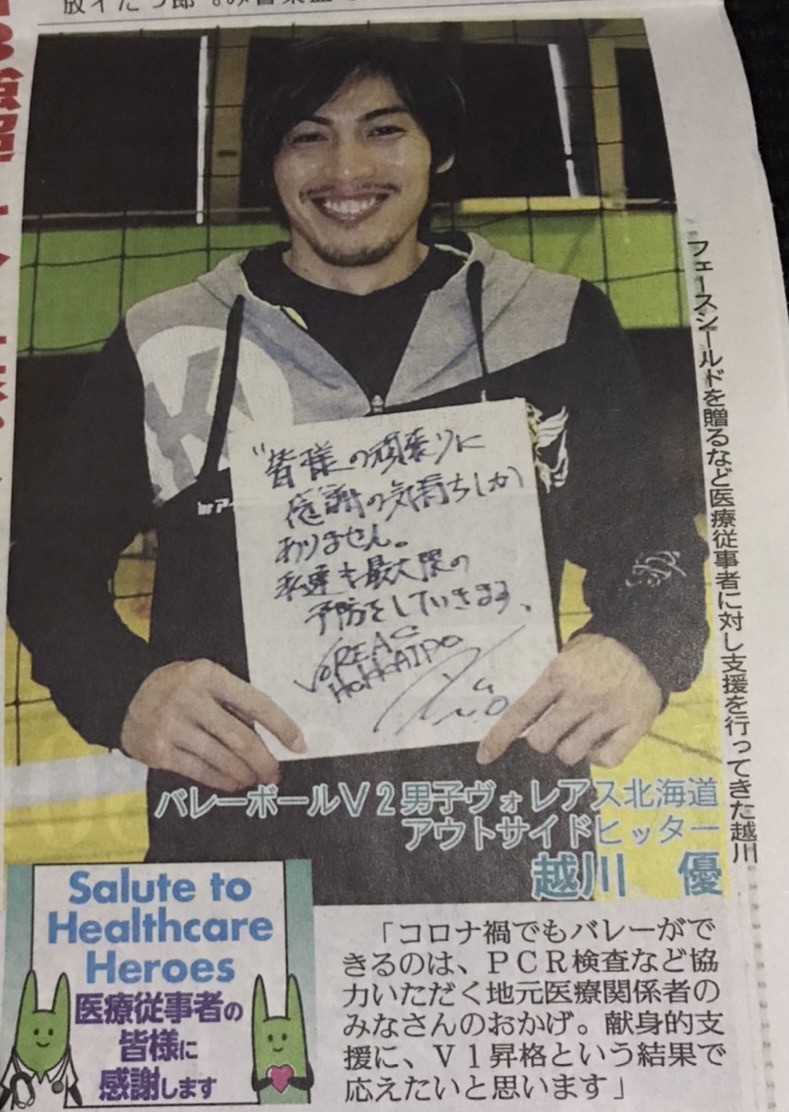 フェースシールドを贈るなど医療従事者に対し支援を行ってきた越川
"皆様の頑張りに
感謝の気持ちしか
ありません。
私達も最大限の
予防をしていきます、
VOREAS
HOKKAIDO
バレーボールV2男子ヴォレアス北海道
アウトサイドヒッター
越川 優
Salute to
Healthcare
Heroes
医療従事者の
皆様に
感謝します
「コロナ禍でもバレーがで
きるのは、PCR検査など協
力いただく地元医療関係者の
みなさんのおかげ。献身的支
援に、V1昇格という結果で
応えたいと思います」